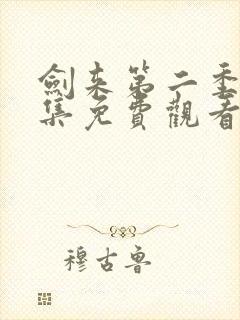 劍来第二季
集免費觀看
穆古魯